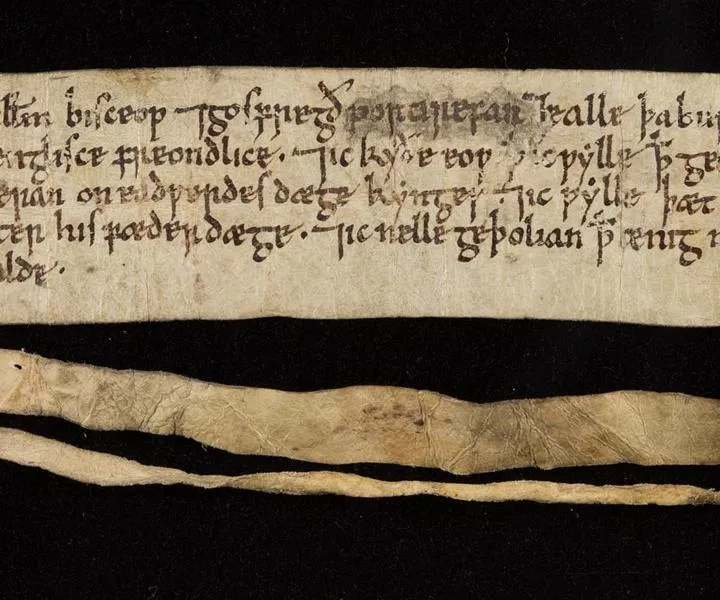 llm bisceop ⁊ gosfregð portirefan ⁊ ealle þa bur
englisce freondlice· ⁊ ic kyðe eoƿ þ̄ ic ƿylle þ̄ ge
æran on eadƿerdes dæge kynges· ⁊ ic ƿylle þæt
ter his fæder dæge· ⁊ ic nelle geþolian þ̄ ænig
alde·